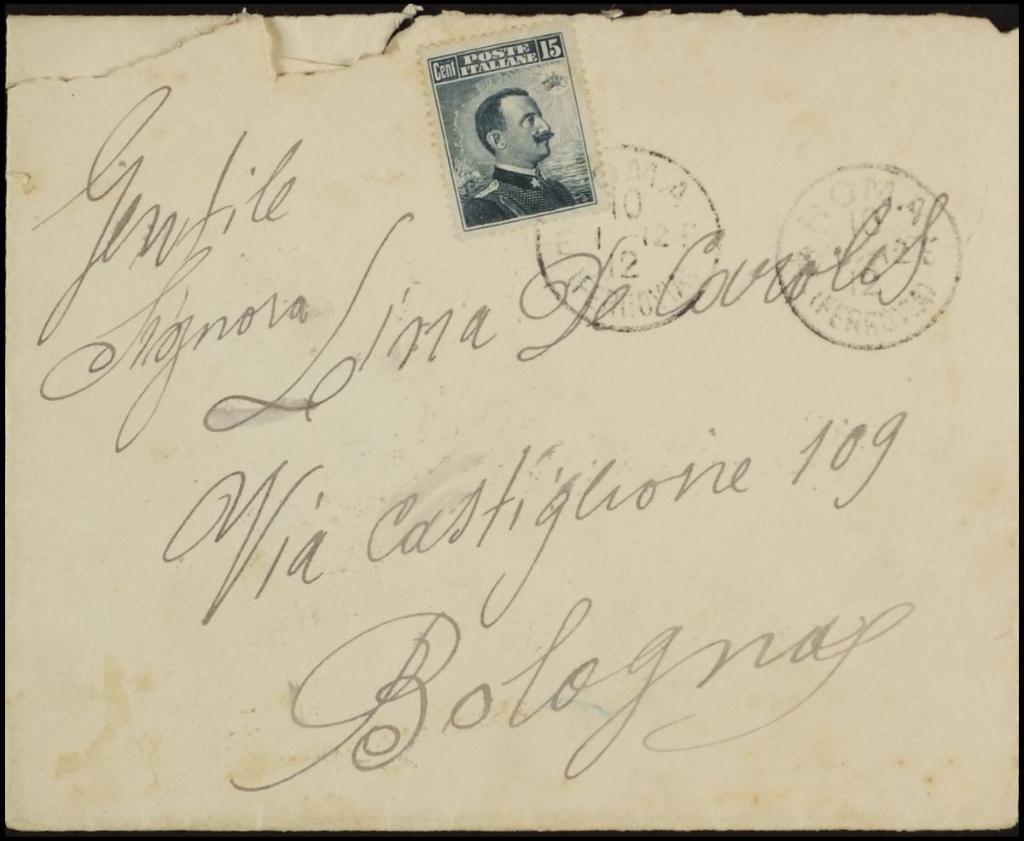 Cent POSTE ITALIANE 15
ROMA
10
1 - 12 E
12
(FERROVIA)
ROMA
10
12 E
12
(FERROVIA)
Gentile
Signora Lina De Carolis
Via Castiglione 109
Bologna